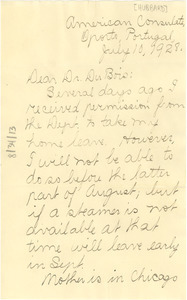 [HUBBARD]
American Consulate,
Oporto, Portugal,
July 10, 1928.
Dear Dr. Du Bois:
Several days ago, I
received permission from
the Dept. to take my
home leave. However,
I will not be able to
do so before the latter
part of August; but
if a steamer is not
available at that
time will leave early
in Sept.
Mother is in Chicago